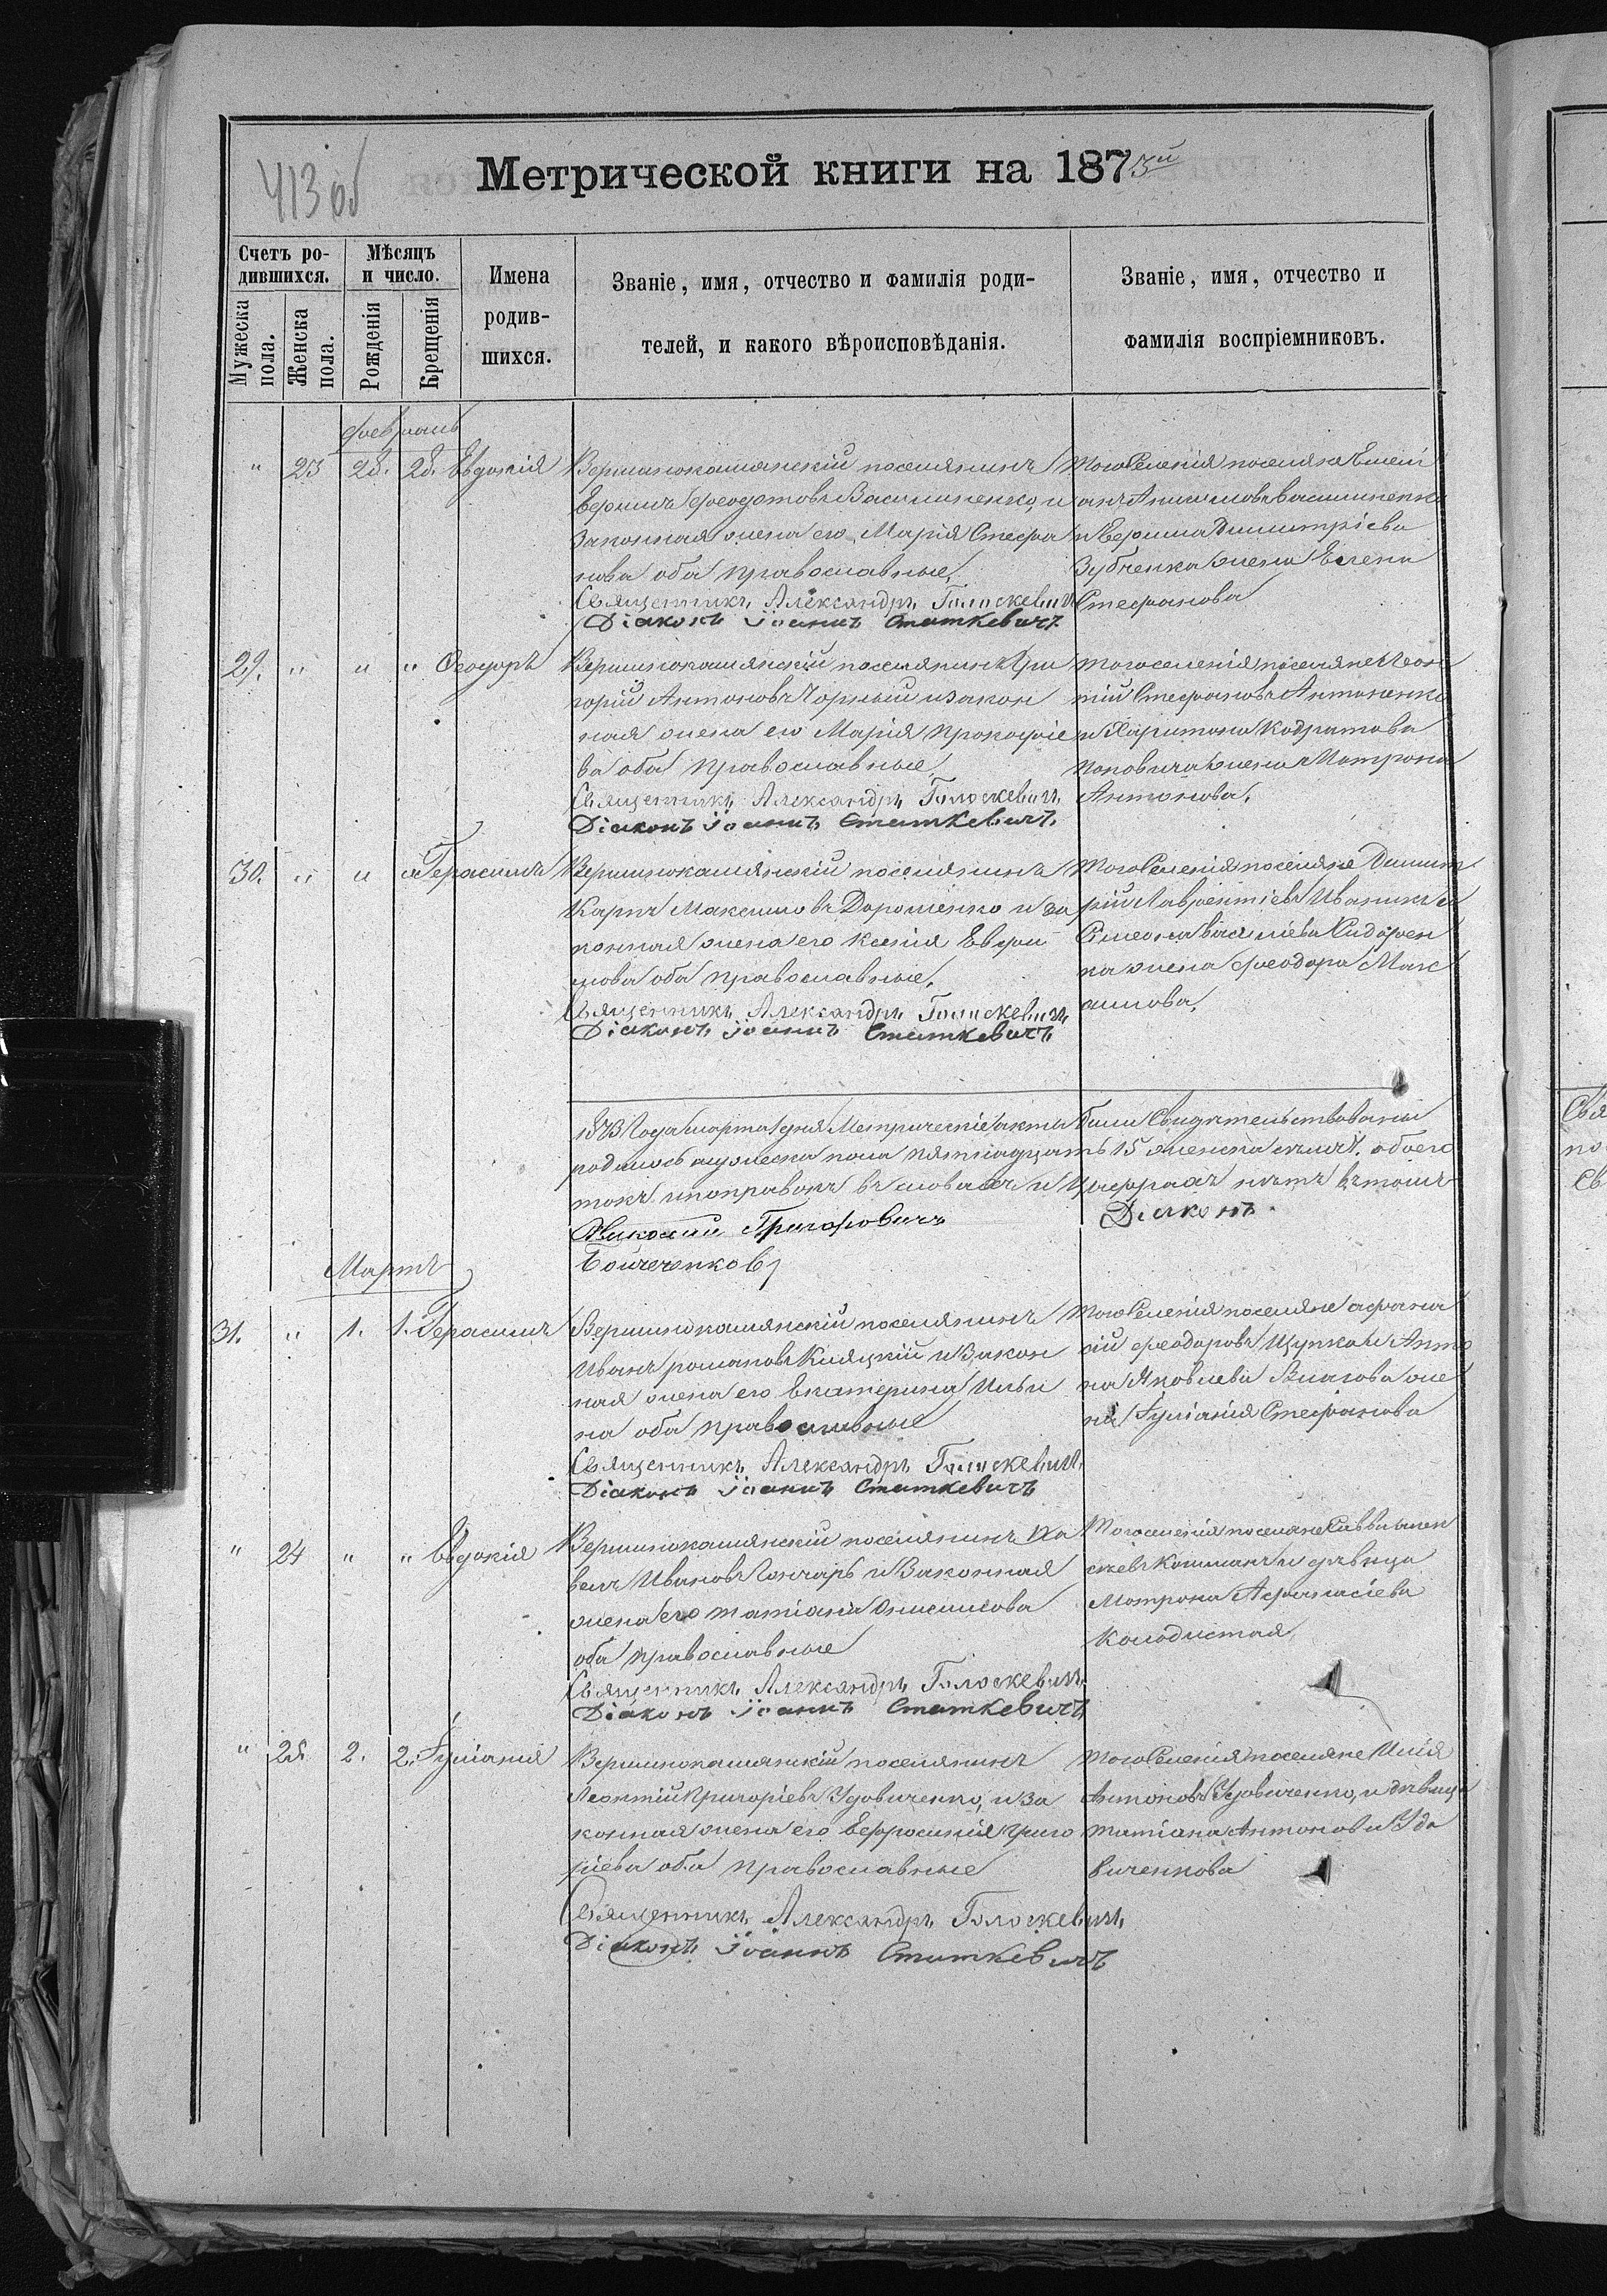 413 об
Метрической книги на 1873й
Счетъ ро-
дившихся.
Мѣсяцъ
и число.
Мужеска
пола.
Женска
пола.
Рожденія
Крещенія
Имена
родив-
шихся.
Званіе, имя, отчество и фамилія роди-
телей, и какого вѣроисповѣданія.
Званіе, имя, отчество и
фамилія воспріемниковъ.
февраль
" 23 28. 28. Евдокія
Вершинокамянскій поселянинъ
Феодотовъ Василиненко, и
Законная жена его Марія Стефа
нова оба православные,
Священникъ Александръ Голоскевичъ
Діаконъ Іоаннъ Статкевичъ
того Селенія поселяне
анъ Анисимовъ Василиненко
и Димитріева
Зубченка жена Елена
Стефанова
29. " " " Ѳеодоръ
Вершинокамянскій поселянинъ Гри
горій Антоновъ Чорный и закон
ная жена его Марія Прокофіе
ва оба православные
Священникъ Александръ Голоскевичъ
Діаконъ Іоаннъ Статкевичъ
того селенія поселяне Леон
тій Стефановъ Антоненко
и Харитона Кодратова
Поповича жена Матрона
Антонова.
30. " " " Герасимъ
Вершинокамянскій поселянинъ
Карпъ Максимовъ Дорошенко и за
конная жена его Ксенія Евфи
мова оба православные,
Священникъ Александръ Голоскевичъ
Діаконъ Іоаннъ Статкевичъ
того Селенія поселяне Димит
рій Лаврентіевъ Иваникъ и
Симеона Василіева Сидорен
ка жена Феодора Макс
имова.
1873 Года марта 1 дня Метрическіе акты были Свидѣтельствованы
родилось мужеска пола пятнадцать 15 женска обоего
токъ и поправокъ въ словахъ и Цыфрахъ нѣтъ вътомъ
Николай Григоровичъ Дьяконъ
Бойченковъ
Мартъ
31. " 1. 1. Герасимъ
Вершинокамянскій поселянинъ
Иванъ романовъ и Закон
ная жена его Екатерина Ильи
на оба православные
Священникъ Александръ Голоскевичъ
Діаконъ Іоаннъ Статкевичъ
того Селенія поселяне афана
сій феодоровъ Щупко и Анто
на Яковлева Власова же
на Іуліанія Стефанова
" 24 " " Евдокія
Вершинокамянскій поселянинъ Па
велъ Ивановъ Гончаръ и Законная
жена его татіана Онисимова
оба православные
Священникъ Александръ Голоскевичъ
Діаконъ Іоаннъ Статкевичъ
Того селенія поселяне Савва Алек
сѣевъ Кошманъ и дѣвица
Матрона Афанасіева
Колодистая
" 25. 2. 2. Іуліанія
Вершинокамянскій поселянинъ
Леонтій Григоріевъ Удовиченко, и за
конная жена его Ефросинія Григо
ріева оба православные
Священникъ Александръ Голоскевичъ
Діаконъ Іоаннъ Статкевичъ
того Селенія поселяне Илія
Антоновъ Удовиченко, и дѣвица
татіана Антонова Удо
виченкова
Свя
по
Св